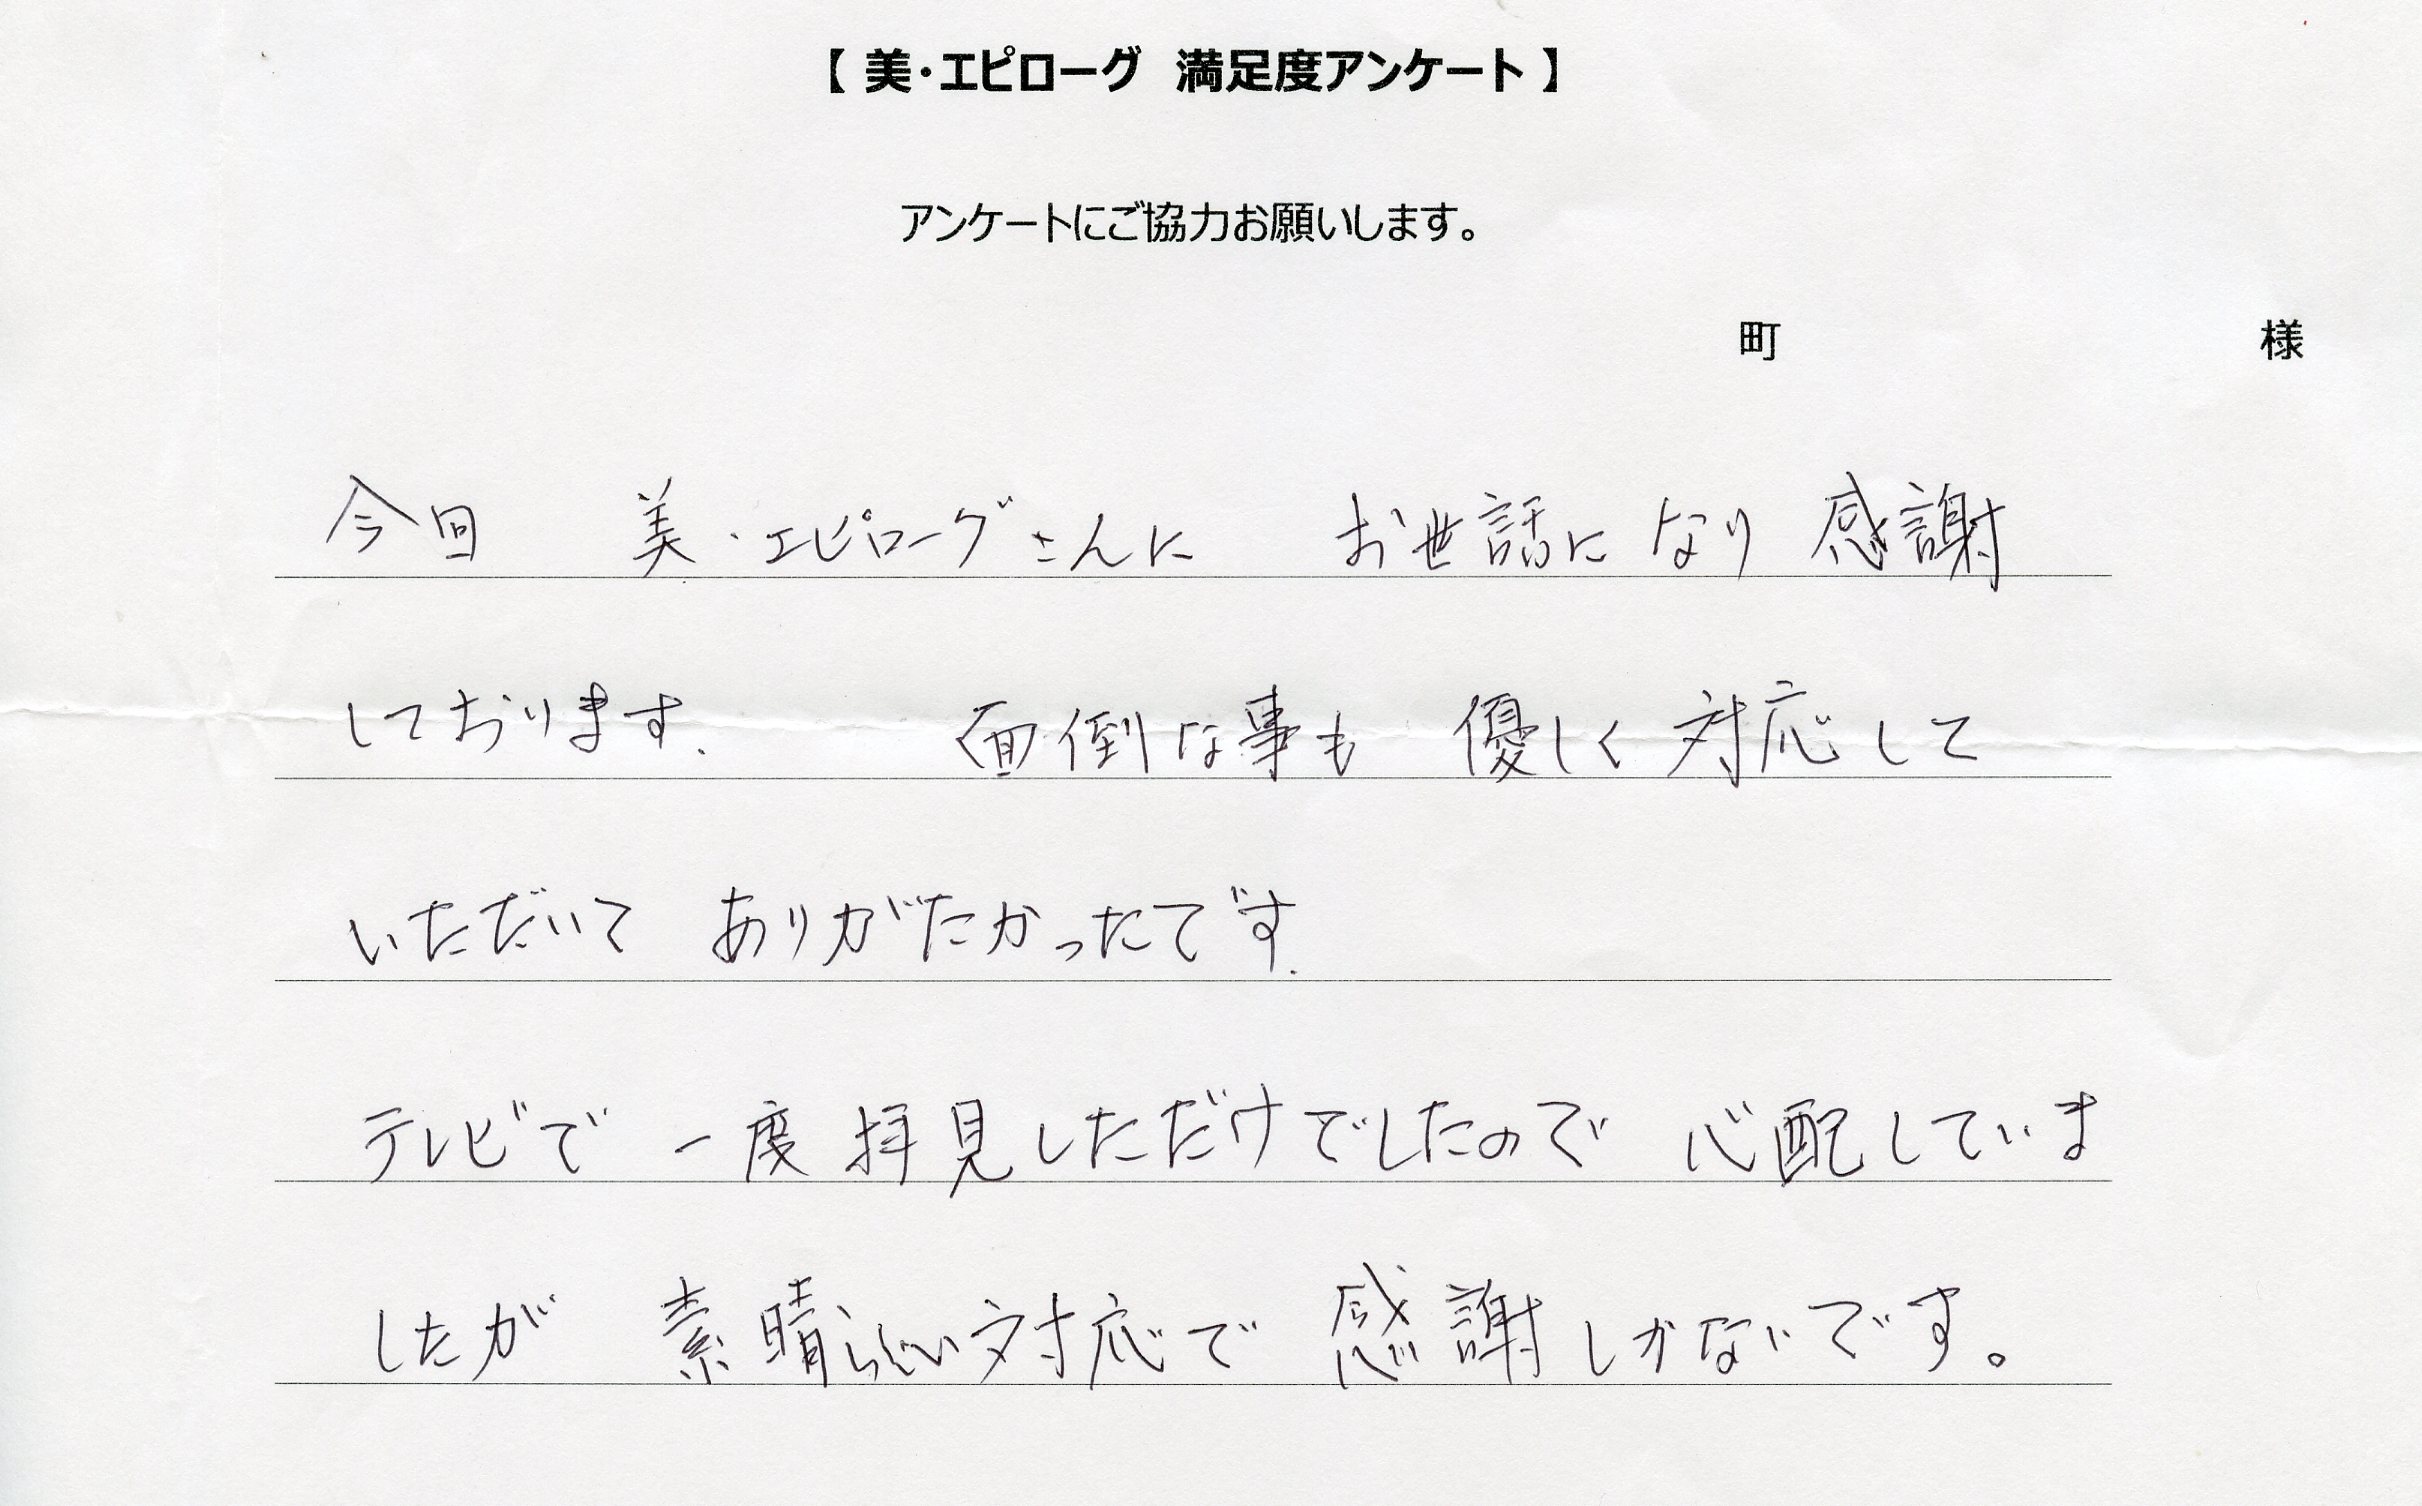 【 美・エピローグ　満足度アンケート 】
アンケートにご協力お願いします。
町　様
今回　美・エピローグさんに　お世話になり 感謝
しております.　面倒な事も 優しく 対応して
いただいて ありがたかったです.
テレビで 一度 拝見しただけでしたので 心配していま
したが　素晴らしい対応で 感謝しかないです。